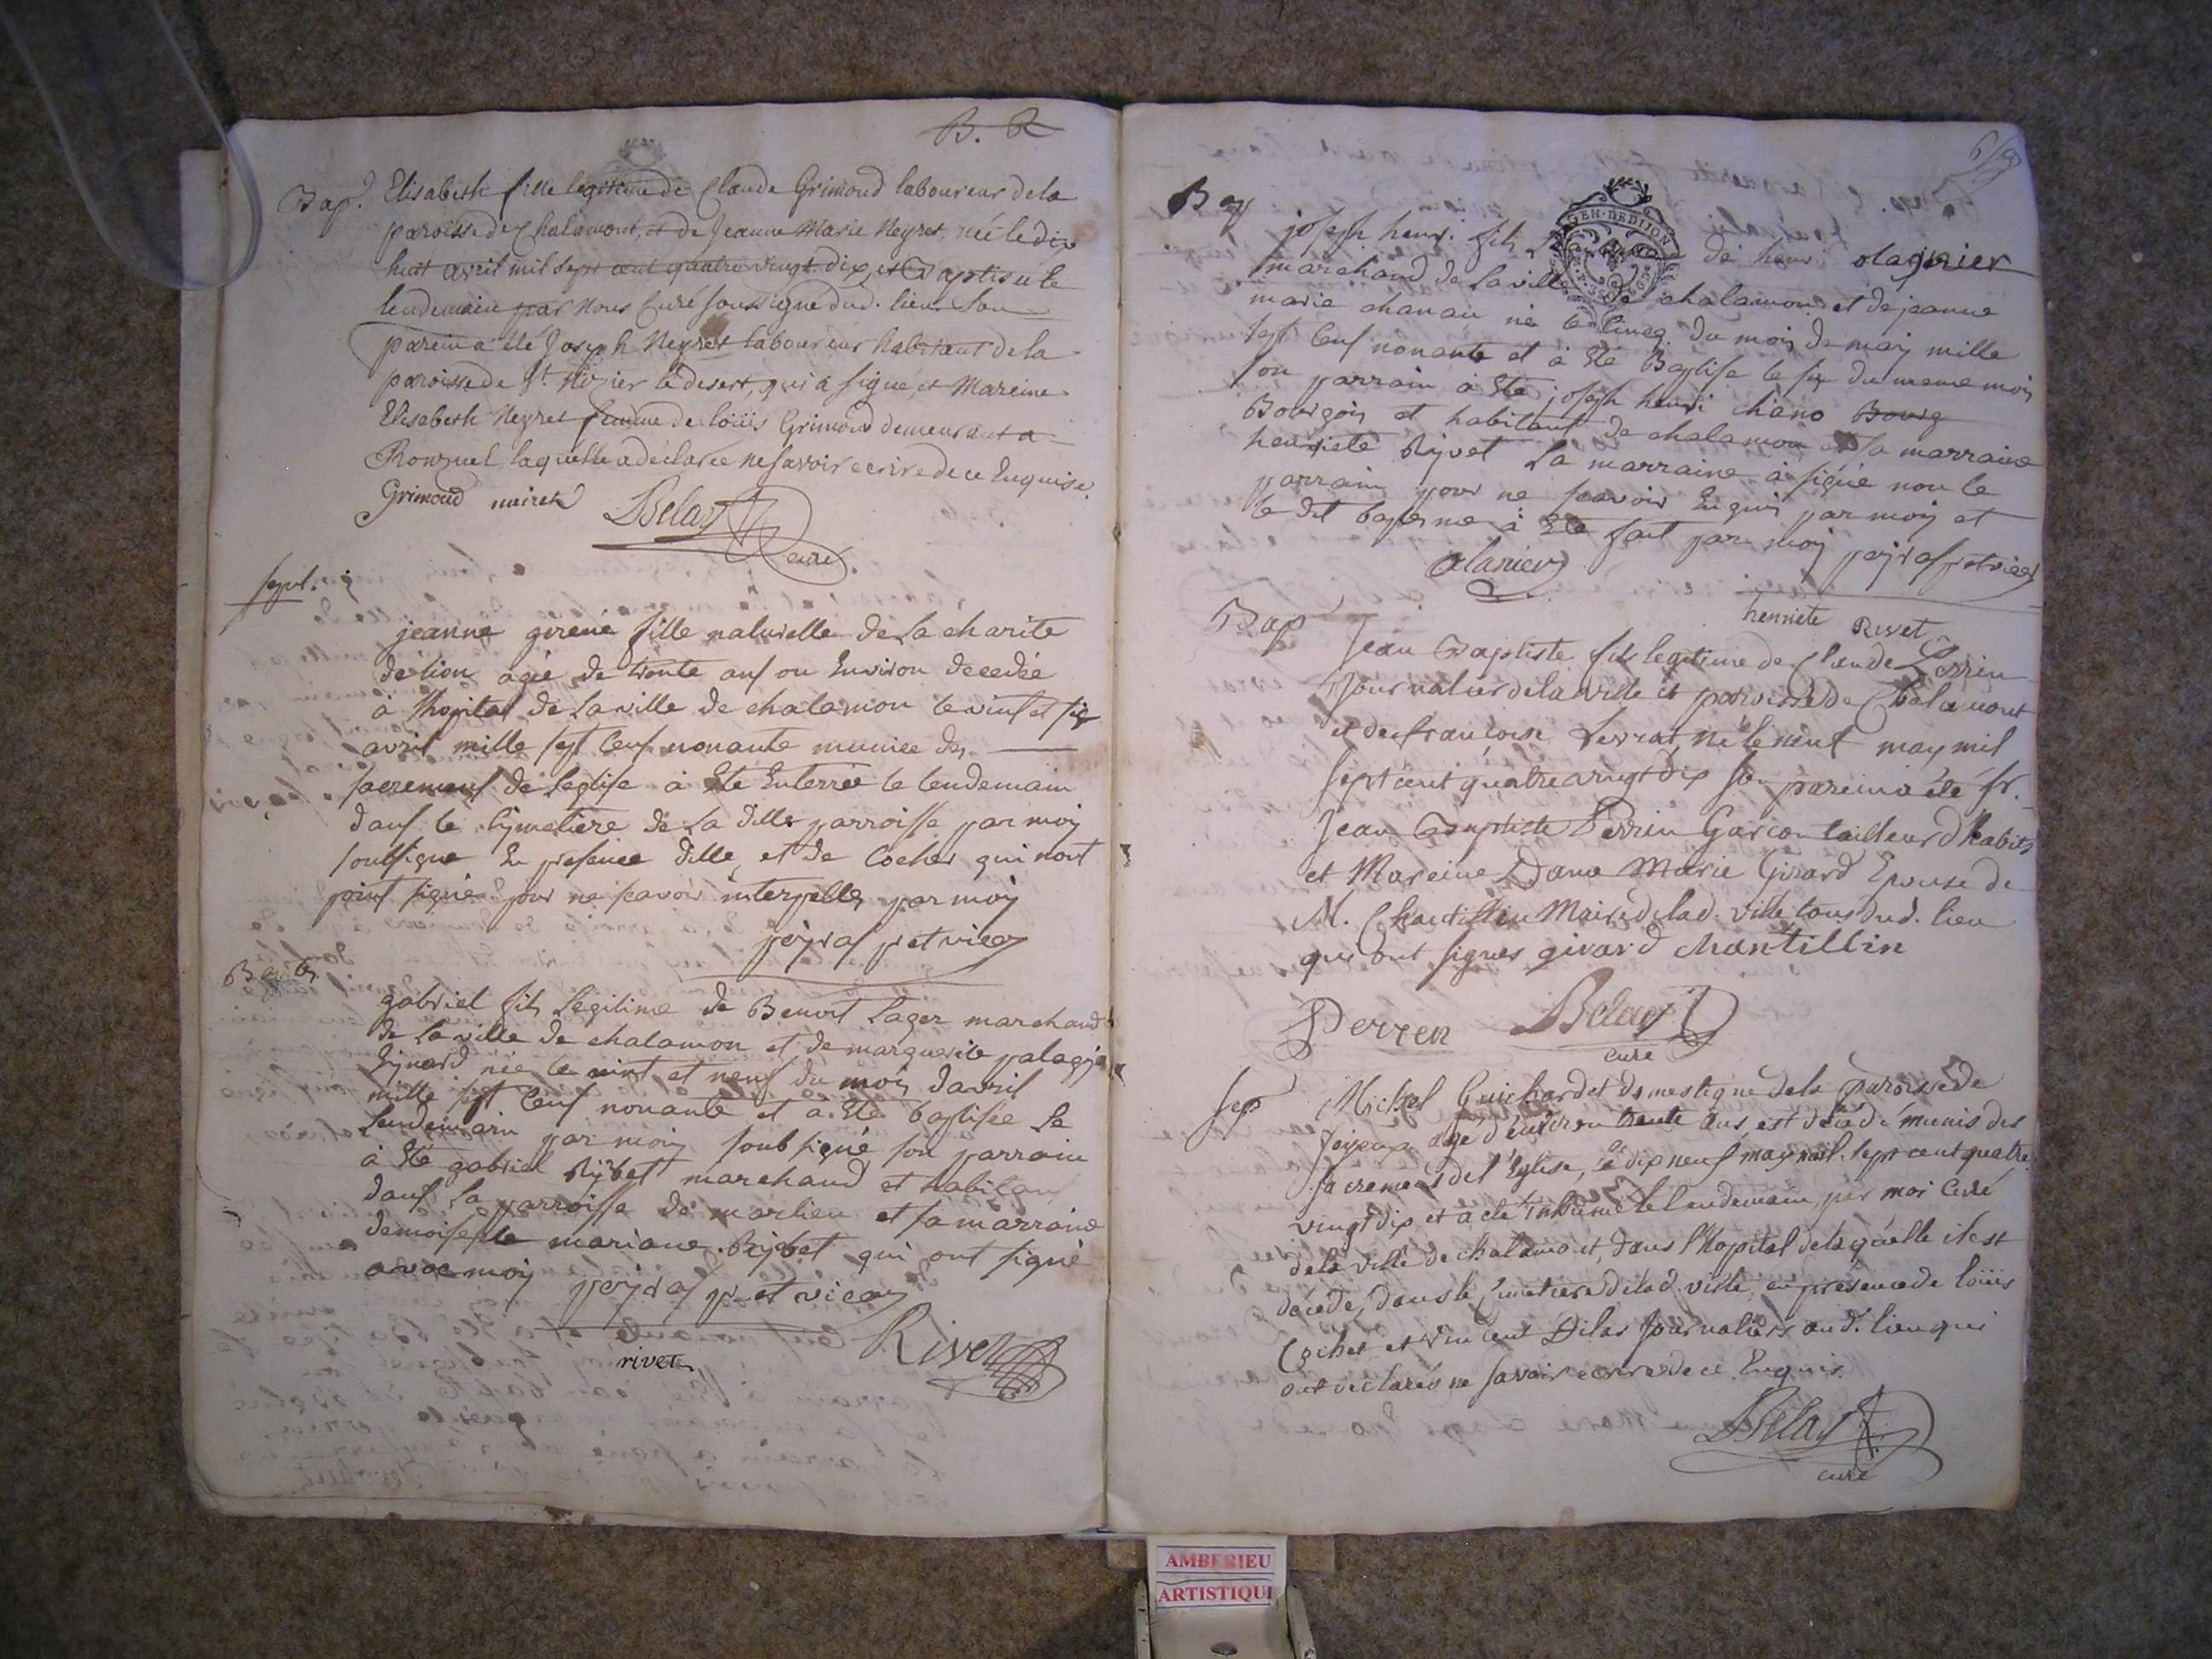 B. R
Bap. Elisabeth fille legitime de Claude Grimoud laboureur de la
paroisse de Chalamont, et de Jeanne Marie Neyret, née le dix
huit avril mil sept cent quatre vingt dix, et Baptisée le
lendemain par Nous Curé soussigné dud. lieu. Son
parein a été Joseph Neyret laboureur habitant de la
paroisse de St. Nizier le desert, qui a signé, et Mareine
Elisabeth Neyret femme de loüis Grimoud demeurant a
Ronzuel, laquelle a déclarée ne savoir ecrire de ce Enquise.
Grimoud neiret Belay
curé
sepul.
jeanne fille naturelle de La charite
de lion agée de trente ans ou Environ decedée
à lhopital de La ville de chalamon le vint et six
avril mille sept Cens nonante munies des
sacremens de leglise à Eté Enterrée le lendemain
dans le Cymetiere de La ditte parroisse par moy
soubsigné En presence dille et de Cochet qui nont
point signé pour ne scavoir interpellés par moy
pejras p et vicar
Bap
gabriel fils Légitime de Benoit Lager marchand
de La ville de chalamon et de marguerite
Eynard née le vint et neuf du mois davril
mille sept Cens nonante et à Eté baptisée le
Lendemain par moy soubsigné son parrain
à Eté gabriel Rÿvet marchand et habitant
dans La parroisse de marlieu et sa marraine
demoiselle mariane Rijvet qui ont signé
avec moy pejras p et vicar
rivet Rivet
GEN. DE DIJON
Bap
joseph henri fils de henri olagnier
marchand de La ville de chalamon et de jeanne
marie né le cinq du mois de may mille
sept Cens nonante et à Eté Baptisé le six du meme mois
son parrain à Eté joseph henri chano Bourg
Bourgois et habitant de chalamon et sa marraine
henriete Rijvet La marraine à signé non le
parrain pour ne scavoir Enquis par moy et
le dit baptesme à Eté fait par moy pejras p et vicar
olanier
henriete Rivet
Bap
Jean Baptiste fils legitime de Claude Perrin
Journalier de la ville et paroisse de Chalamont
et de françoise né le neuf may mil
sept cent quatre vingt dix son parein a été sr.
Jean Baptiste Perrin Garçon tailleur d'habits
et Mareine Dame Marie Girard Epouse de
M. Chantillin Maire de lad. ville tous dud. lieu
qui ont signés girard chantillin
Perren Belay
curé
Sep
Michel Guichardet domestique de la paroisse de
Joyeux agé d'environ trente ans est décédé munis des
sacremens de l'Eglise, le dix neuf may mil sept cent quatre
vingt dix, et a été inhumé le lendemain, par moi Curé
de la ville de Chalamont, dans l'Hopital de laquelle il est
décédé, dans le Cimetiere de lad. ville, en présence de loüis
Cochet et Vincent Dilas Journaliers aud. lieu qui
ont déclarés ne savoir ecrire de ce Enquis.
Belay
curé
AMBERIEU
ARTISTIQU